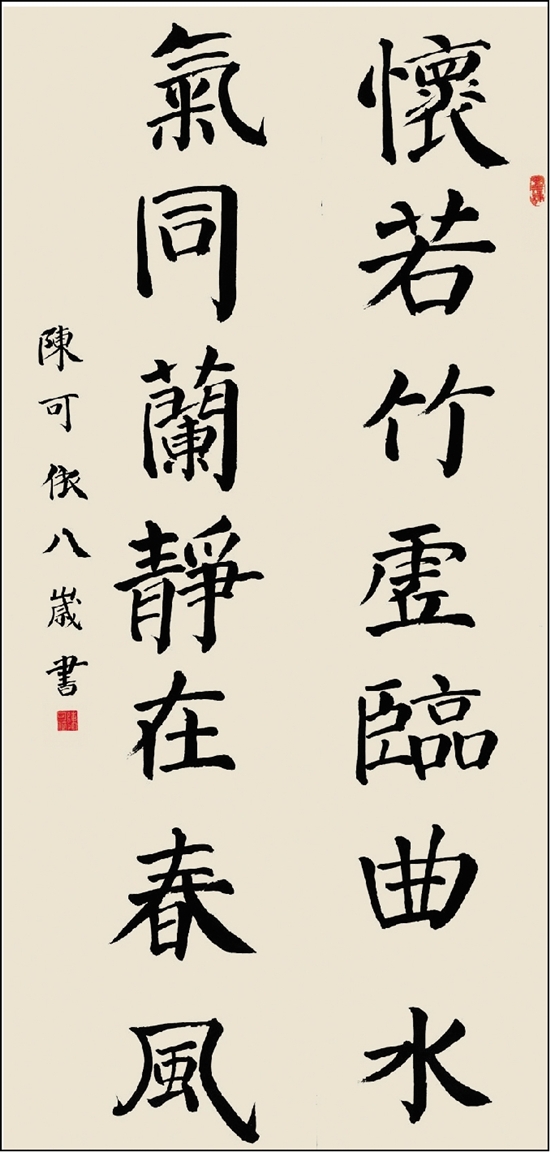 懷若竹虛臨曲水
氣同蘭靜在春風
陳可依八歲書